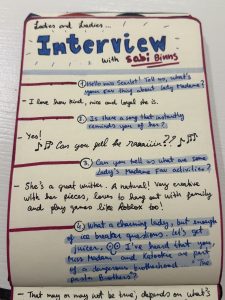 Ladies and Ladies...
Interview
with Sabi Binns
① Hello miss Scarlet! Tell us, what's
your fav thing about Lady Madame?
- I love how kind, nice and loyal she is.
② Is there a song that instantly
reminds you of her?
- Yes!
Can you pull he raaaiiin??
③ Can you tell us what are some
lady's Madame fav activities?
- She's a great writer. A natural! Very creative
with her pieces, loves to hang out with family
and play games like Roblox too!
④ What a charming lady, but enough
of ice breaker questions. Let's get
juicier. I've heard that you,
Miss Madame and are part
of a dangerous brotherhood. The
pasta Brothers?
- That may or may not be true, depends on what's